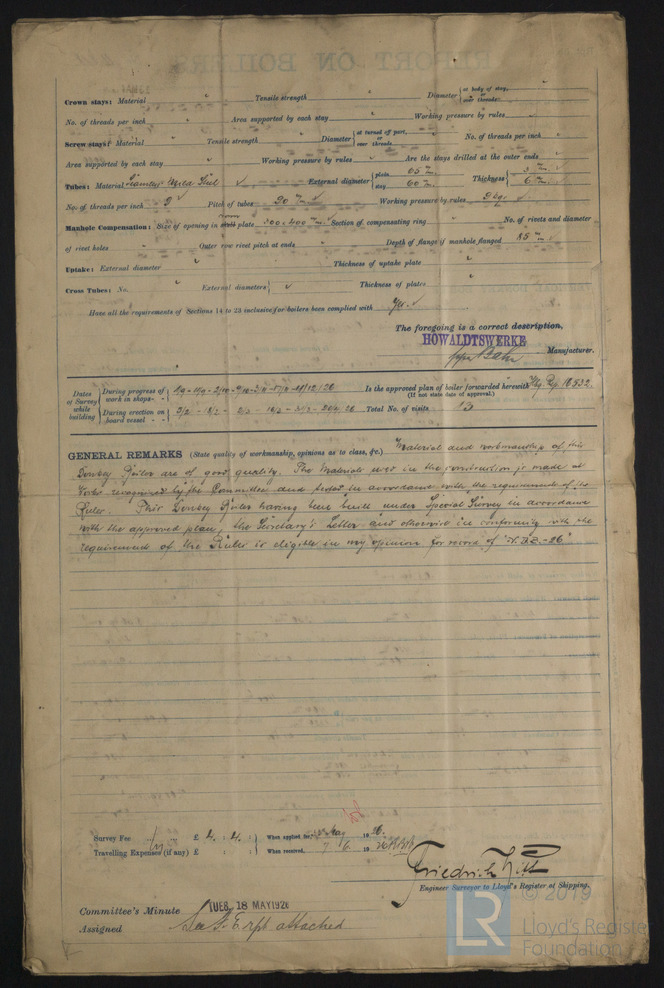 Crown stays: Material " Tensile strength Diameter { at body of stay, or over threads
No. of threads per inch Area supported by each stay Working pressure by rules
Screw stays: Material " Tensile strength Diameter { at turned off part, or over threads No. of threads per inch
Area supported by each stay Working pressure by rules Are the stays drilled at the outer ends
Tubes: Material Seamless Mild Steel External diameter { plain 63 m/m stay 60 m/m Thickness { 3 m/m 6 m/m
No. of threads per inch 9 Pitch of tubes 90 m/m Working pressure by rules
Manhole Compensation: Size of opening in shell plate 300 x 400 m/m Section of compensating ring No. of rivets and diameter
of rivet holes Outer row rivet pitch at ends Depth of flange if manhole flanged 85 m/m
Uptake: External diameter Thickness of uptake plate
Cross Tubes: No. External diameters { Thickness of plates
Have all the requirements of Sections 14 to 23 inclusive for boilers been complied with Yes.
The foregoing is a correct description,
HOWALDTSWERKE
Manufacturer.
Dates of Survey while building { During progress of work in shops - - Is the approved plan of boiler forwarded herewith
(If not state date of approval.)
During erection on board vessel - - Total No. of visits 13
GENERAL REMARKS (State quality of workmanship, opinions as to class, &c.) Material and workmanship of this
Donkey Boiler are of good quality. The Materials used in the construction is made at
Works recognized by the Committee and tested in accordance with the requirements of the
Rules. This Donkey Boiler having been built under Special Survey in accordance
with the approved plan, the Secretary's Letter and otherwise in conformity with the
requirement of the Rules is eligible in my opinion for record of "N.D.B.-26"
Survey Fee £ 4 : 4 : When applied for, May 1926.
Travelling Expenses (if any) £ : : When received, 7 6. 19
Friedrich
Engineer Surveyor to Lloyd's Register of Shipping.
Committee's Minute TUES. 18 MAY 1926
Assigned See F.E. rpt attached
LR
© 2019
Lloyd's Register
Foundation